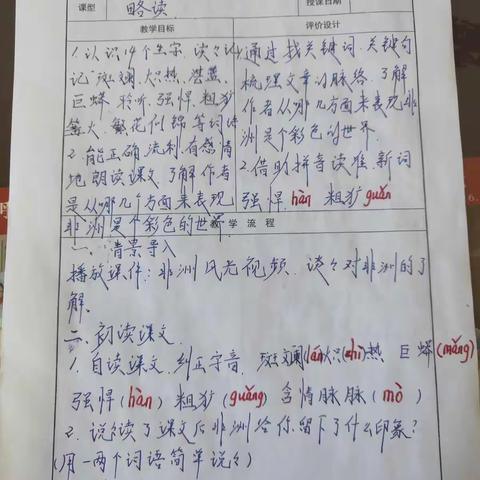 课型
略读
授课日期
教学目标
评价设计
1.认识14个生字,读读记
记“斑斓、炽热、湛蓝、
巨蟒、聆听、强悍、粗犷
篝火、繁花似锦等词语
2.能正确、流利、有感情
地朗读课文,了解作者
是从哪几个方面来表现
非洲是个彩色的世界.
1.通过找关键词、关键句
梳理文章的脉络,了解
作者从哪几方面来表现非
洲是个彩色的世界.
2.借助拼音读准新词
强悍 hàn 粗犷guǎn
教 学 流 程
一、背景导入
播放课件:非洲风光视频,谈谈对非洲的了
解.
二、初读课文.
1.自读课文,纠正字音. 斑斓(lán)炽(chì)热 巨蟒(mǎng)
强悍(hàn) 粗犷(guǎng) 含情脉脉(mò)
2.说说读了课文后非洲给你留下了什么印象?
(用一两个词语简单说说)